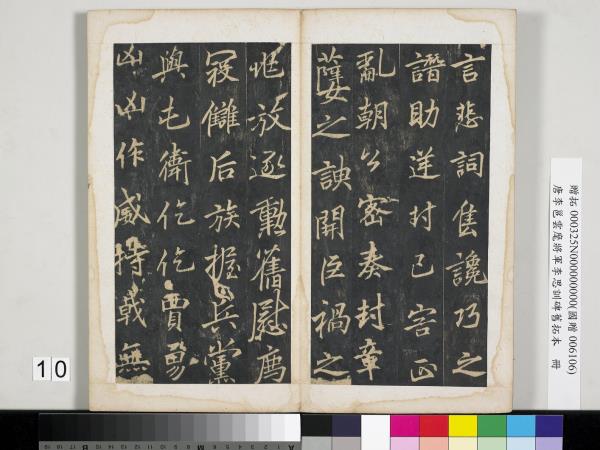 言悲詞售讒乃之
譖助逆封已害正
亂朝公密奏封章
孽之諛開臣禍之
兆放逐勳舊慰薦
寇讎后族握兵黨
與屯衛仡仡賁勇
凶凶作威持戟無
贈拓 000325N000000000(國贈 006106)
唐李邕雲麾將軍李思訓碑舊拓本 冊
10